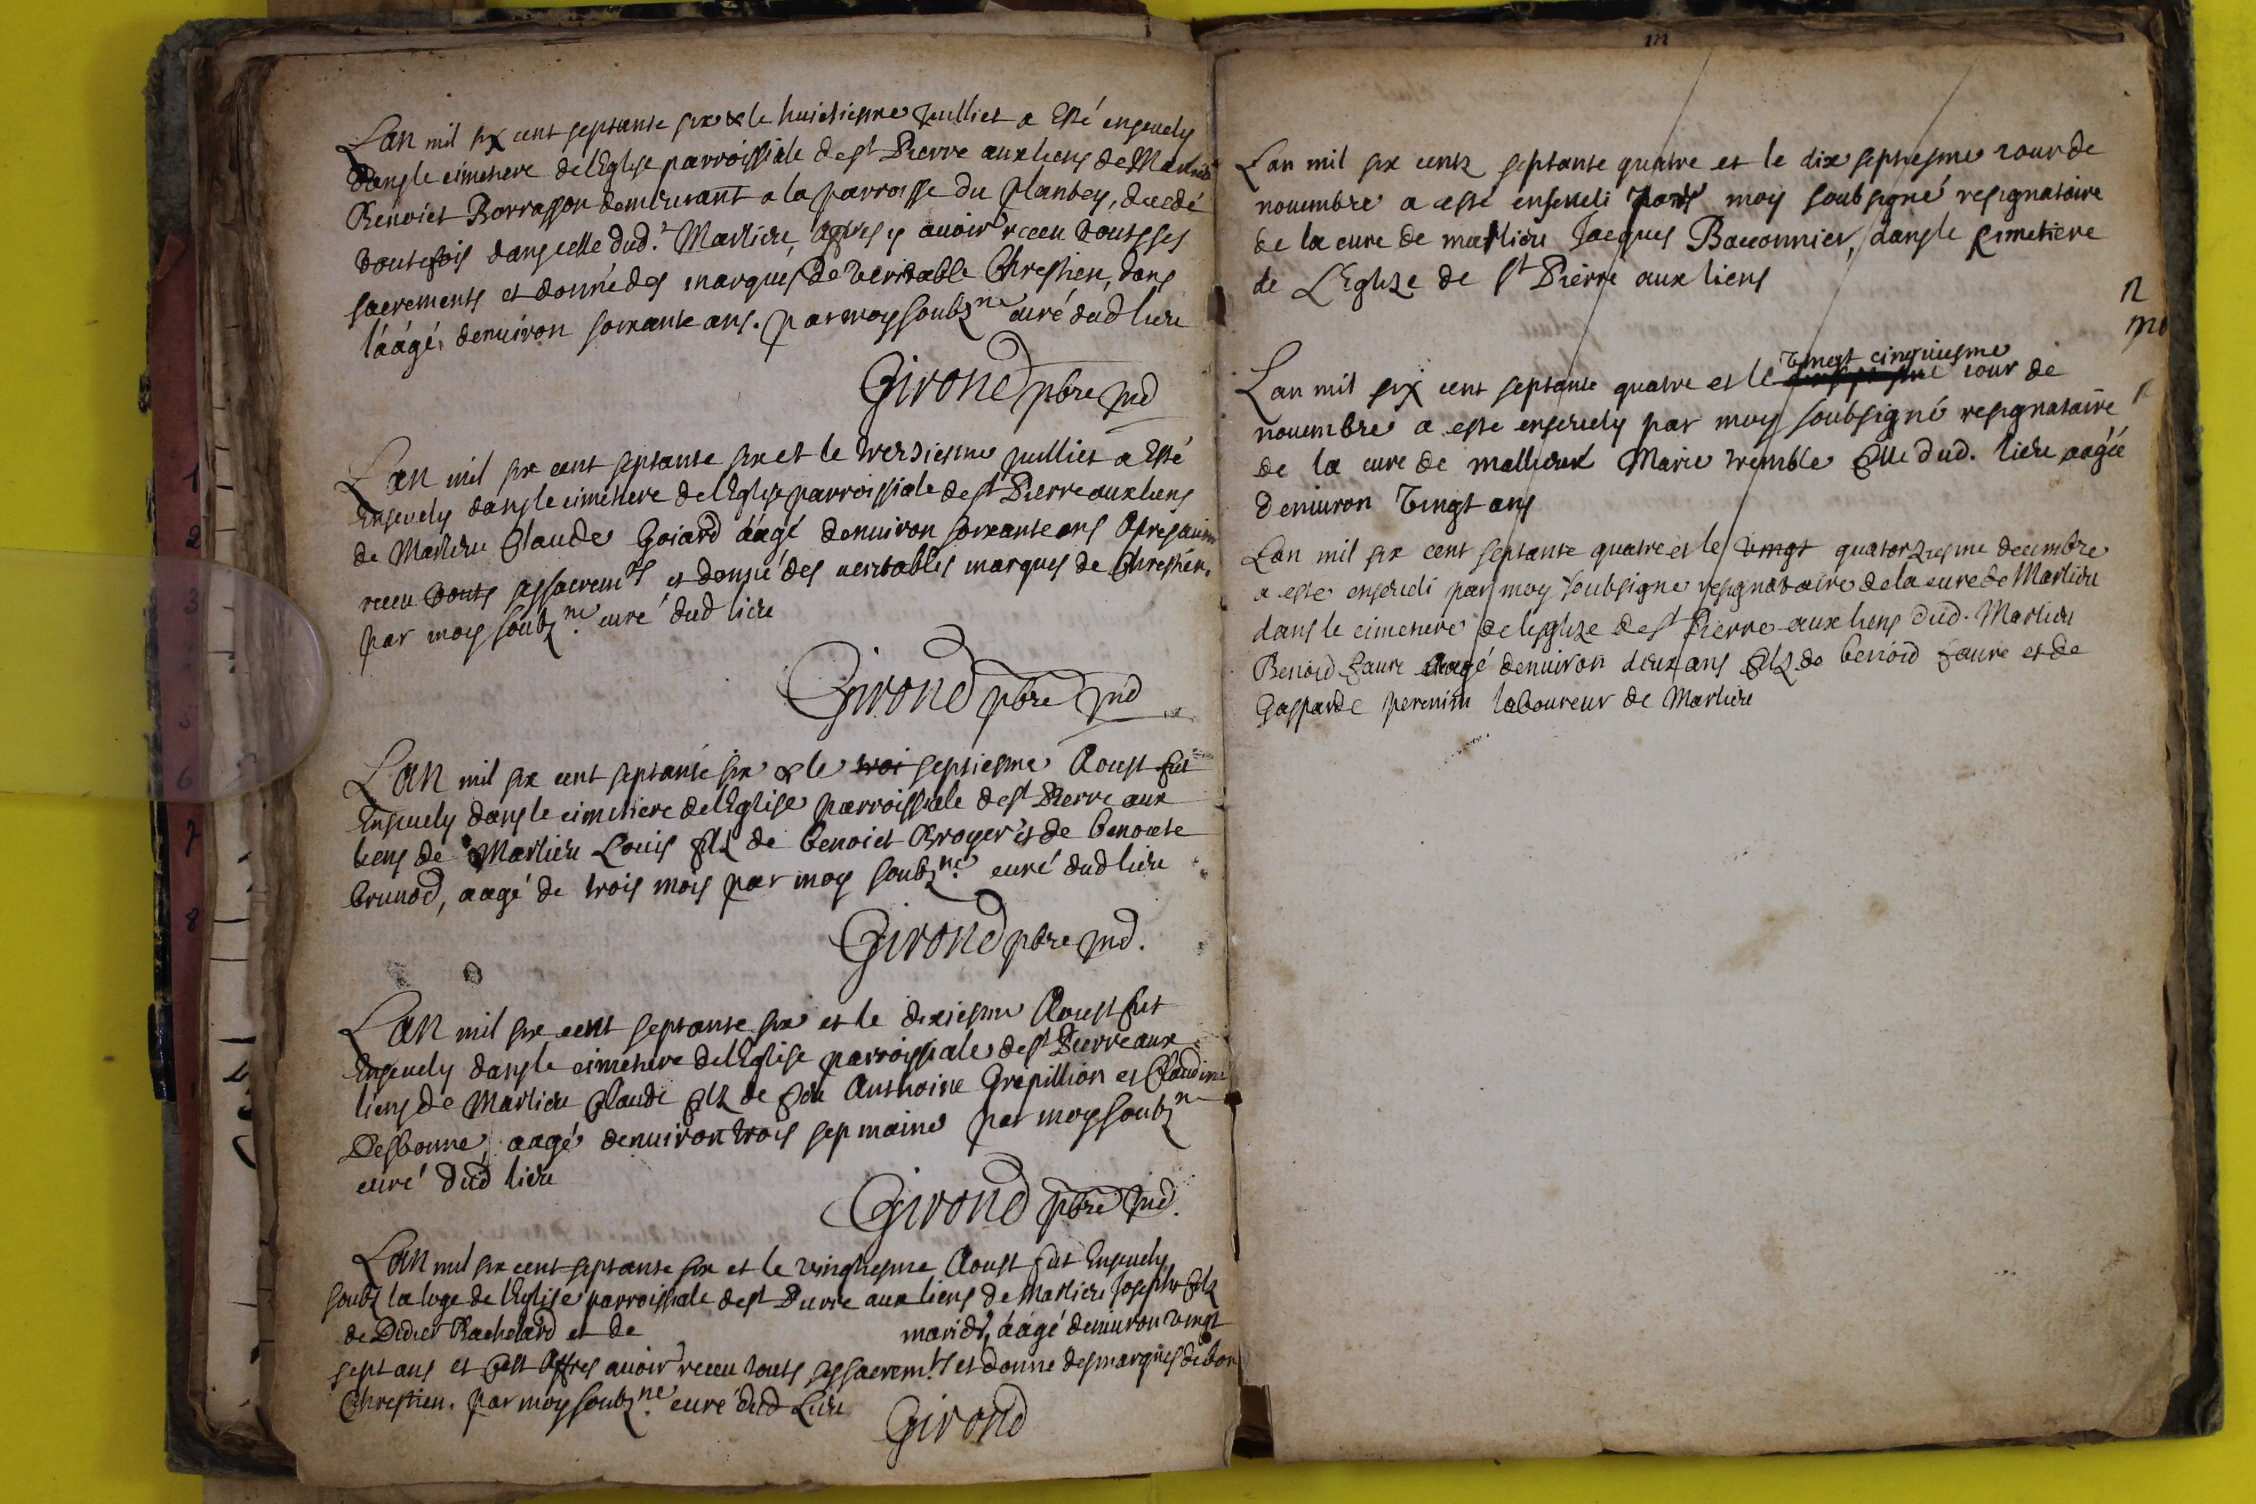 Lan mil six cent septante six & le huictiesme juilliet a esté ensevely
dans le cimetiere de l'Eglise parroissiale de st Pierre aux liens de Marlieu
Benoict Borrasson demeurant a la parroisse du plantey, decedé
toutefois dans celle dud.t Marlieu, apres y avoir receu touts ses
sacrements et donné des marques de veritable Chrestien, dans
l'áàgé, denviron soixante ans. par moy soubzne curé dud lieu
Girond pbre ind
Lan mil six cent septante six et le treiziesme juilliet a esté
Ensevely dans le cimetiere de l'Eglise parroissiale de st Pierre aux liens
de Marlieu Claude Goiard áàgé denviron soixante ans apres avoir
receu touts ses sacremts et donné des veritables marques de Chrestien,
par moy soubzne curé dud lieu
Girond pbre ind
Lan mil six cent septante six & le troi septiesme Aoust fut
Ensevely dans le cimetiere de l'Eglise parroissiale de st Pierre aux
liens de Marlieu Louis filz de benoict Broyer et de benoiste
brunod, aagé de trois mois par moy soubzne curé dud lieu
Girond pbre ind.
Lan mil six cent septante six et le dixiesme Aoust fut
Ensevely dans le cimetiere de l'Eglise parroissiale de st Pierre aux
liens de Marlieu Claude filz de feu Anthoine Grepillion et Claudine
Desbonne, aagé denviron trois sepmaine par moy soubzne
curé dud lieu
Girond pbre ind.
Lan mil six cent septante six et le vingtiesme Aoust fut Ensevely
soubz la loge de l'Eglise parroissiale de st Pierre aux liens de Marlieu Joseph filz
de Didier Rachelard et de mariés, áàgé denviron vingt
sept ans et cest apres avoir receu touts ses sacrem.ts et donne des marques de bon
Chrestien. par moy soubzne curé dud Lieu
Girond
Lan mil six centz septante quatre et le dix septiesme iour de
novembre a esté enseveli par moy soubsigné resignataire
de la cure de marlieu Jacques Baconnier, dans le cimetiere
de L'Eglize de st Pierre aux liens
vingt cinquiesme
Lan mil six cent septante quatre et le iour de
novembre a esté ensevely par moy soubsigné resignataire
de la cure de mallieux Marie tremble fille dud. lieu aagéé
denviron vingt ans
Lan mil six cent septante quatre et le vingt quatorziesme decembre
a esté enseveli par moy soubsigne resignataire de la cure de Marlieu
dans le cimetiere de l'esglize de st Pierre aux liens dud. Marlieu
Benoid faure aagé denviron deux ans filz de benoid faure et de
Gasparde perenin laboureur de Marlieu